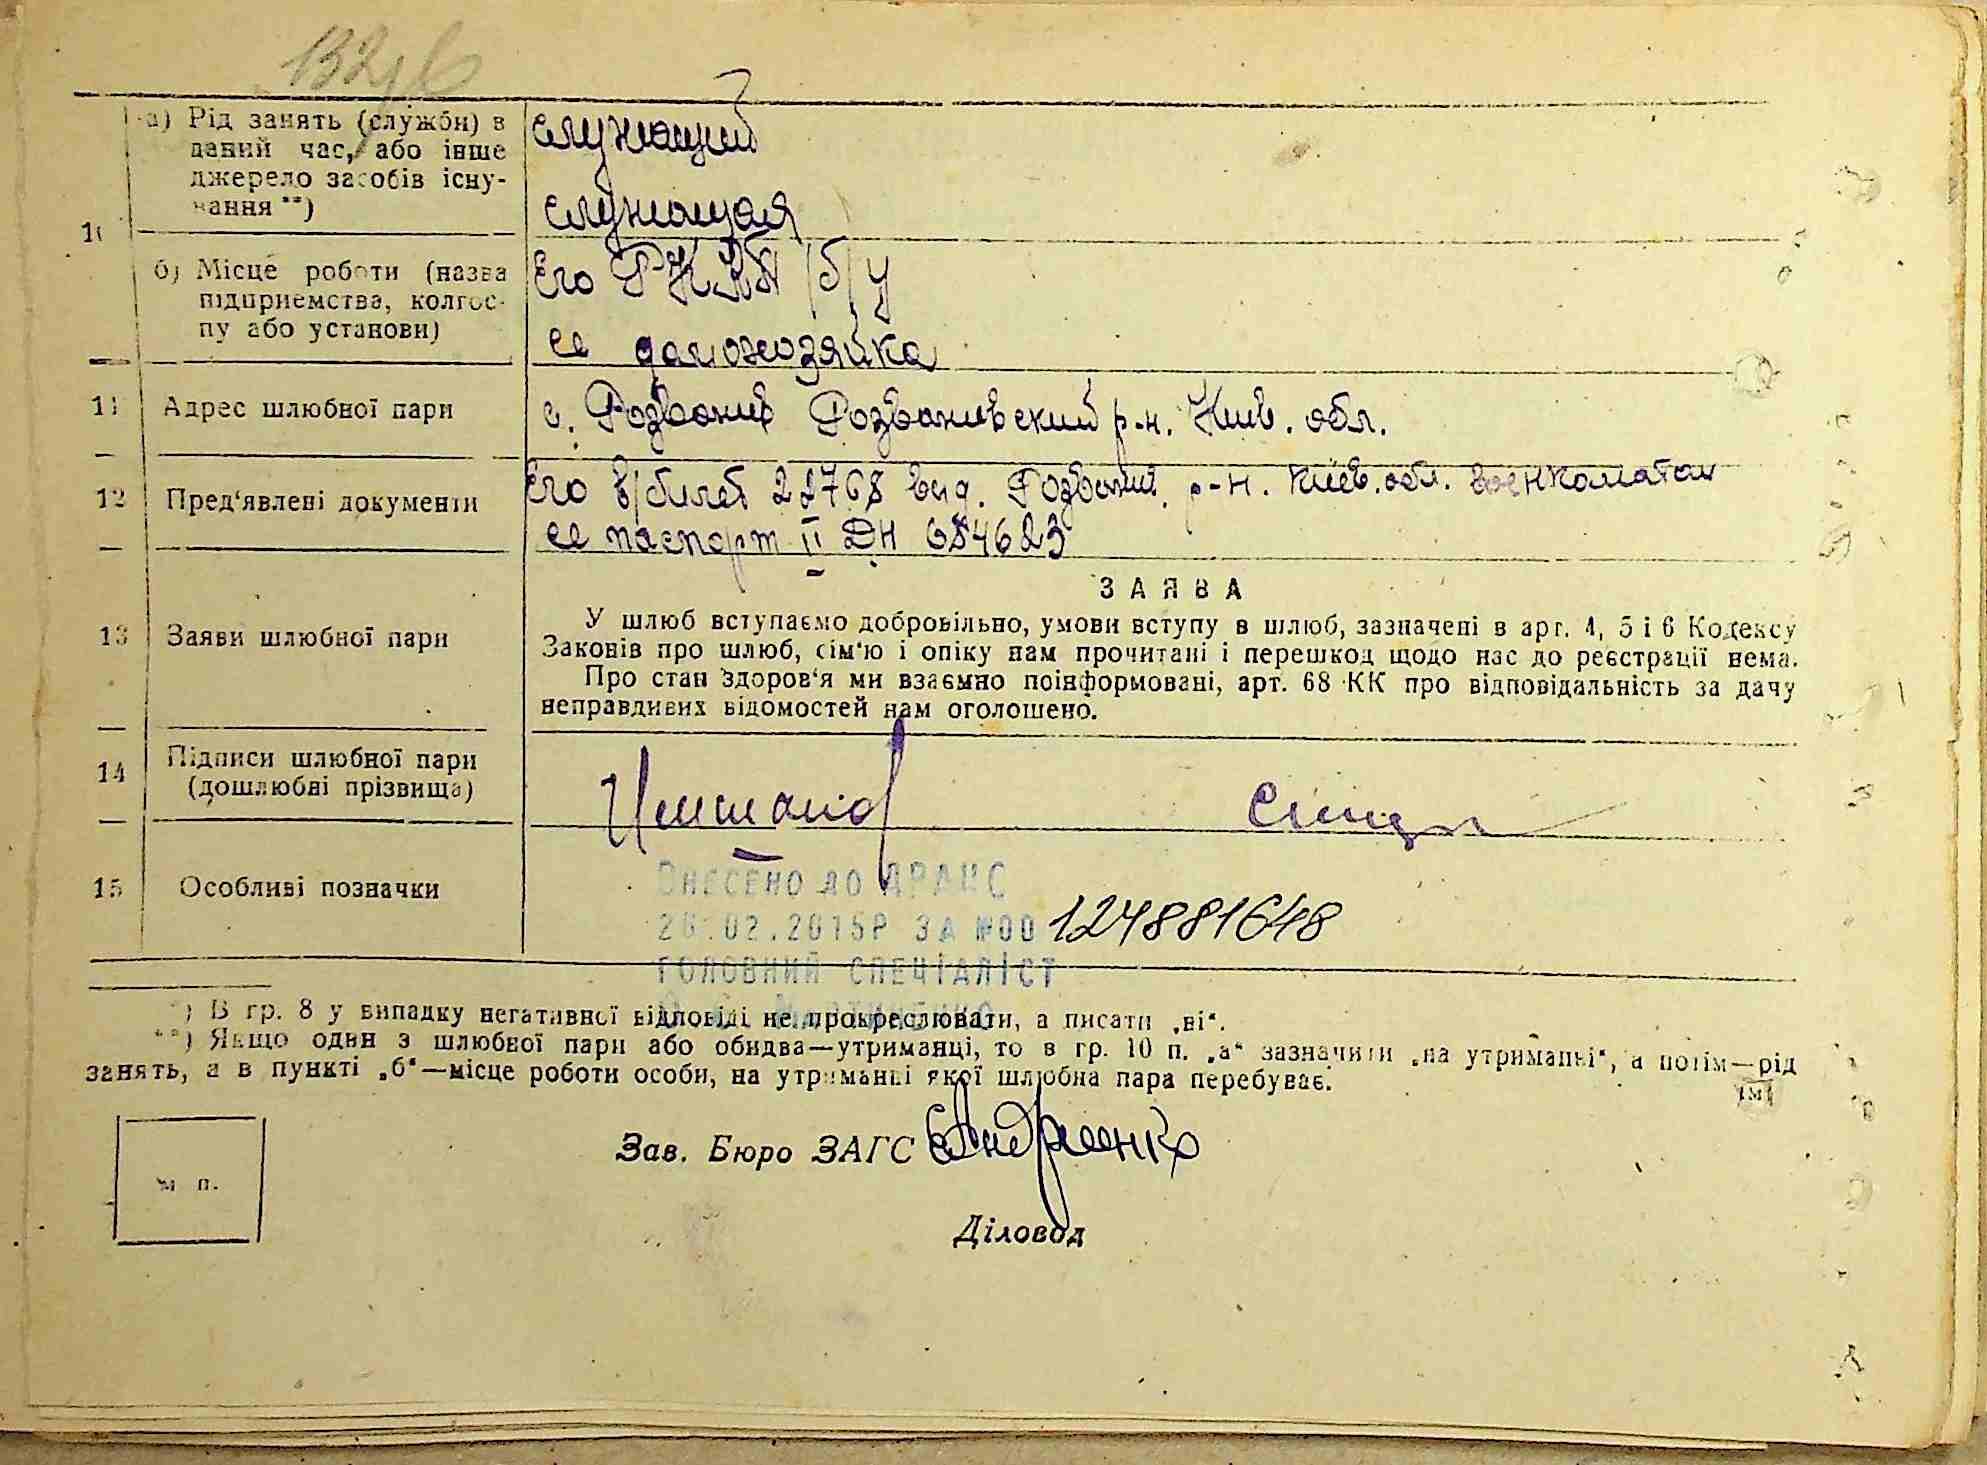 132
а) Рід занять (служби) в
даний час, або інше
джерело засобів існу-
вання **)
служащий
служащая
10
б) Місце роботи (назва
підприємства, колгос-
пу або установи)
Его
ее домохозяйка
11 Адрес шлюбної пари
с. Розважив Розваживский р-н. Киев. обл.
12 Пред‘явлені документи
Его в/билет 22768 выд. Розважив. р-н. Киев. обл. военкоматом
ее паспорт II ДН 684623
ЗАЯВА
13 Заяви шлюбної пари
У шлюб вступаємо добровільно, умови вступу в шлюб, зазначені в арт. 4, 5 і 6 Кодексу
Законів про шлюб, сім‘ю і опіку нам прочитані і перешкод щодо нас до реєстрації нема.
Про стан здоров‘я ми взаємно поінформовані, арт. 68 КК про відповідальність за дачу
неправдивих відомостей нам оголошено.
14 Підписи шлюбної пари
(дошлюбні прізвища)
15 Особливі позначки
ВНЕСЕНО ДО ДРАЦС
02.2015Р ЗА №00 124881648
ГОЛОВНИЙ СПЕЦІАЛІСТ
*) В гр. 8 у випадку негативної відповіді не прокреслювати, а писати „ні“.
**) Якщо один з шлюбної пари або обидва—утриманці, то в гр. 10 п. „а“ зазначити „на утриманні“, а потім—рід
занять, а в пункті „б“—місце роботи особи, на утриманні якої шлюбна пара перебуває.
Зав. Бюро ЗАГС
м п.
Діловод